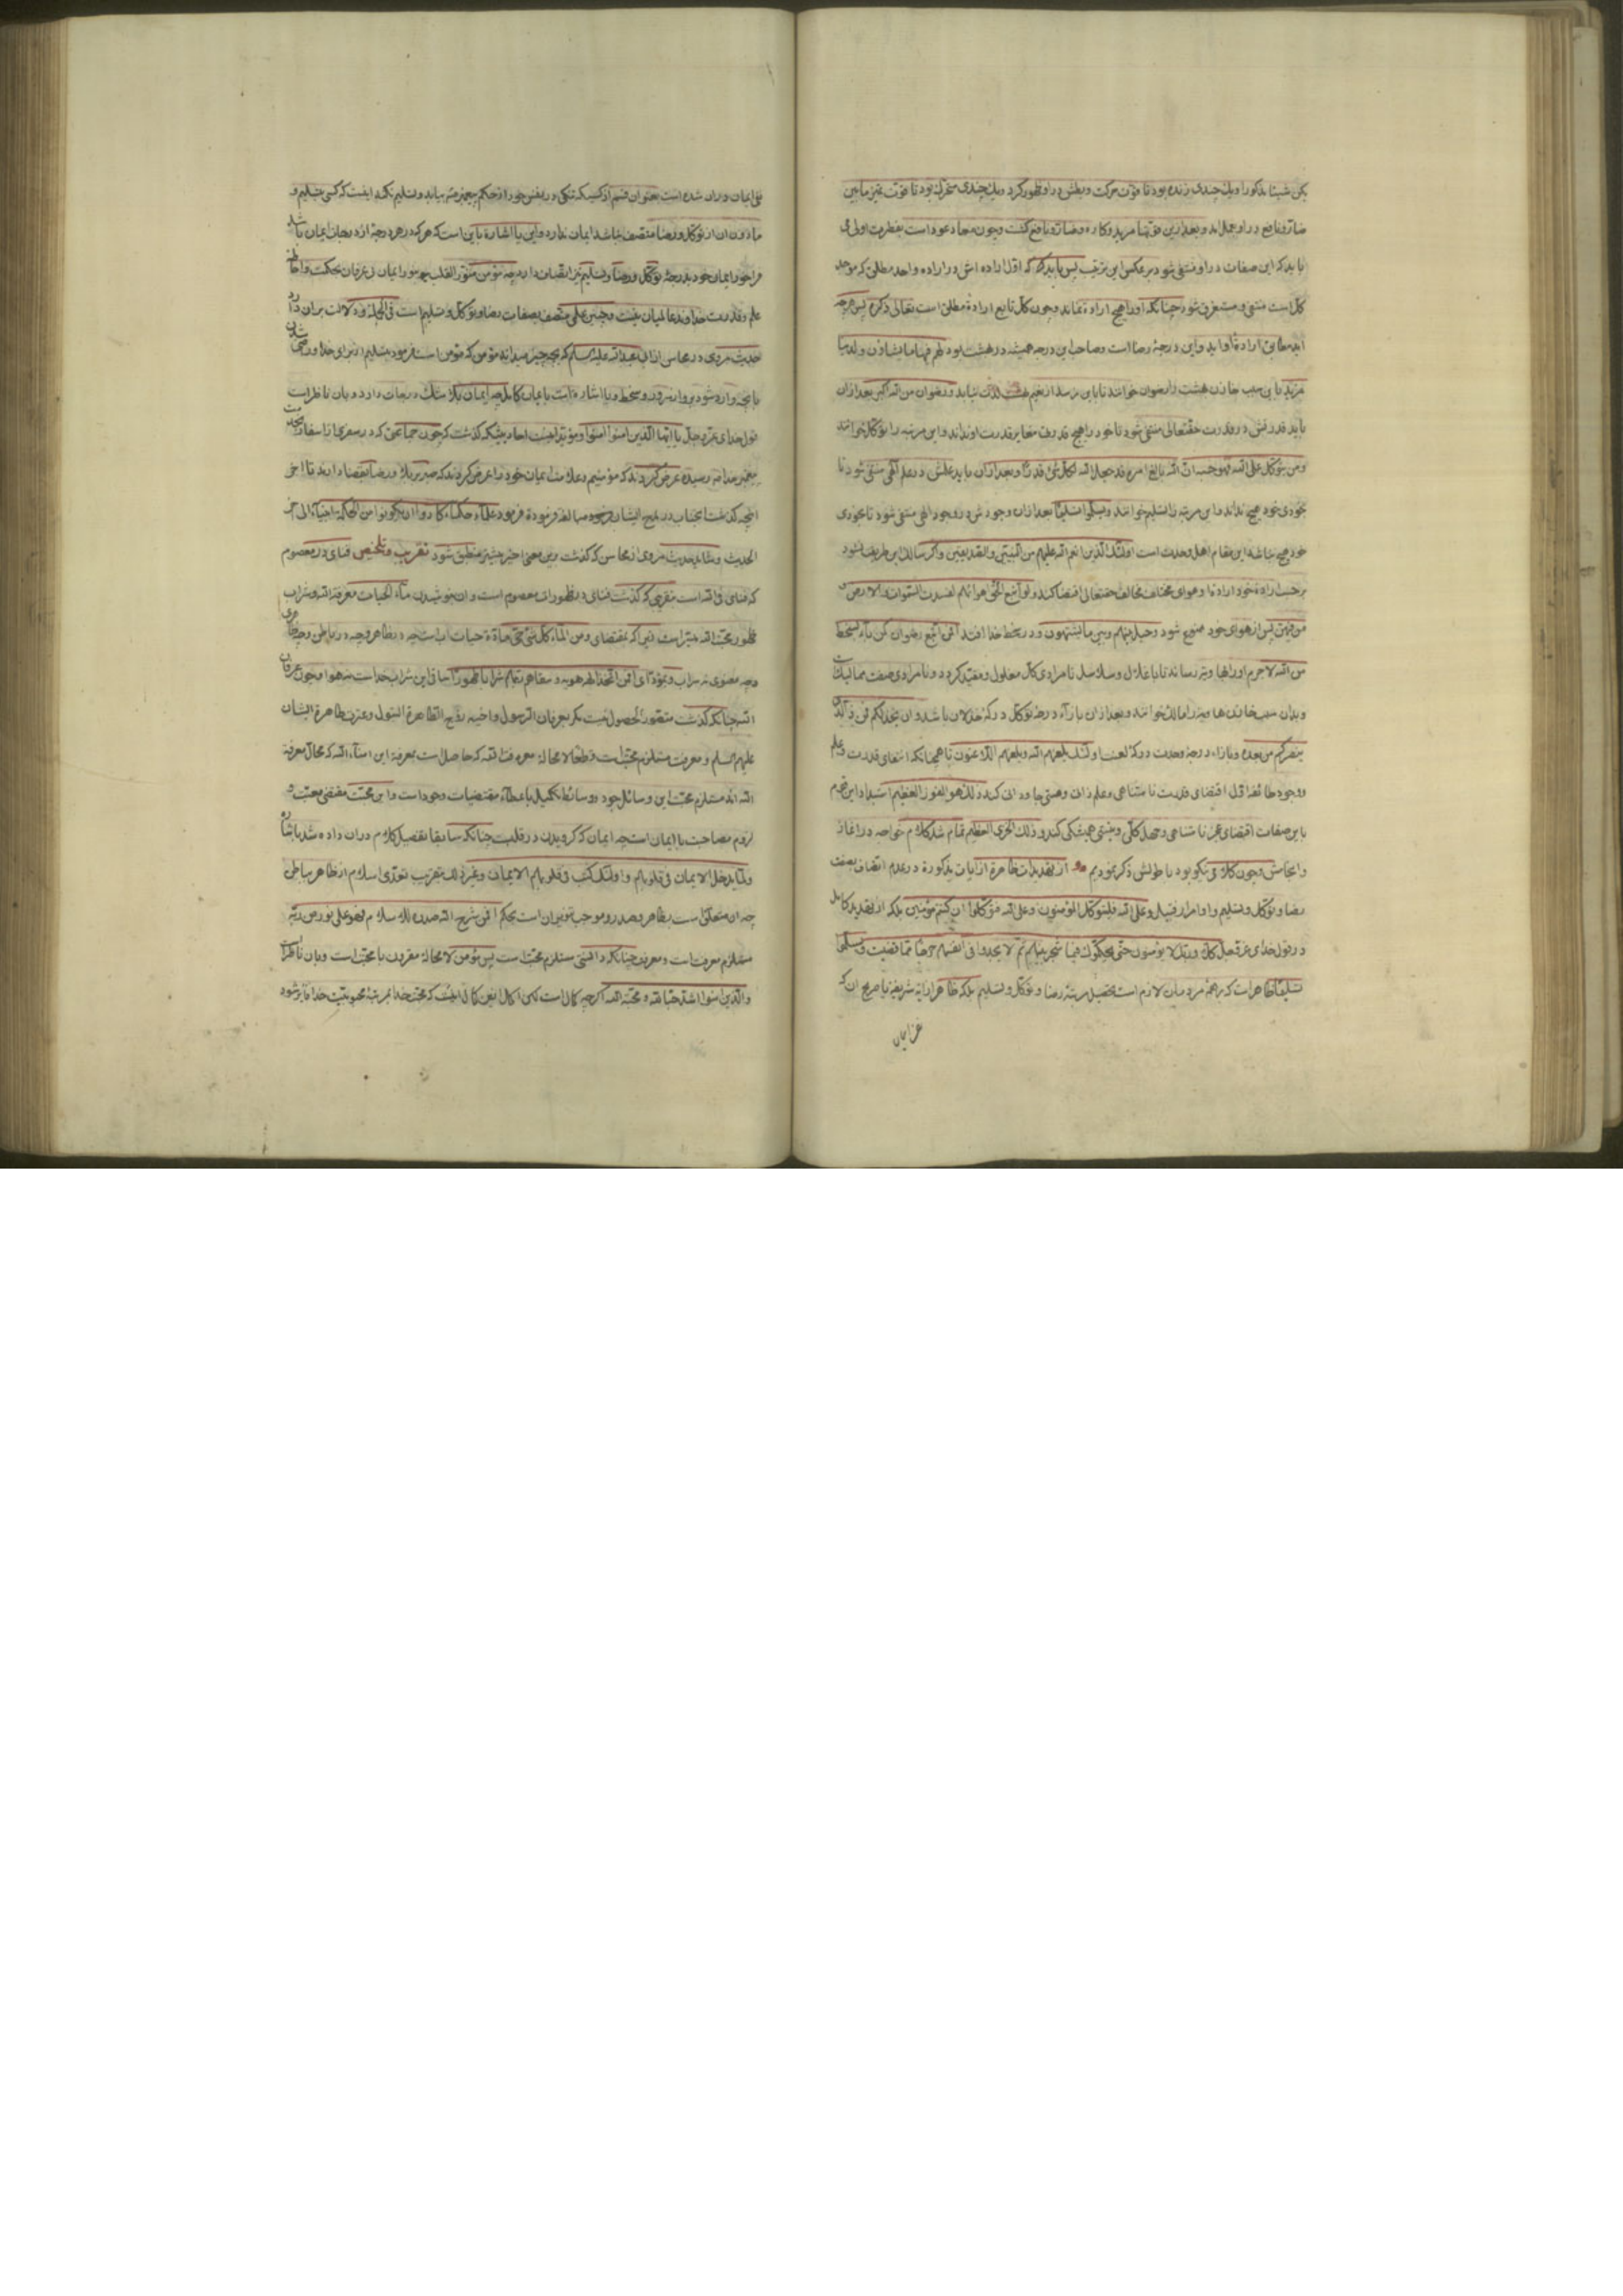 یکن شیئا مذکورا و یک چندی زنده بود تا قوّت حرکت و بطش در او ظهور کرد و یک چندی متحرّک بود تا قوّت تمیز مابین
ضارّ و نافع در او بعد از این مرید و کاره ضارّ و نافع گشت و چون معاد عود است بفطرت اولی می
باید که این صفات در او منتفی شود بر عکس این ترتیب پس باید که اوّل اراده اش در اراده واحد مطلق که موجد
کلّ است منتفی و مستغرق شود چنانکه او را هیچ ارادة نماند و چون کلّ تابع ارادة مطلق است تعالی ذکره پس هرچه
آید مطابق ارادة او آید و این درجهٔ رضا است و صاحب این درجه همیشه در بهشت بود لهم فیها ما یشاؤن و لدینا
مزید باین سبب خازن بهشت را رضوان خوانند تا باین نرسد از نعیم بهشت لذّت نیابد و رضوان من الله اکبر بعد از ان
باید قدرتش در قدرت حقتعالی منتفی شود تا خود را هیچ قدرت مغایر قدرت او نداند و این مرتبه را توکّل خوانند
و من یتوکّل علی الله فهو حسبه انّ الله بالغ امره قد جعل الله لکلّ شیٔ قدرًا و بعد از ان باید علمش در علم الهی منتفی شود تا
بخودی خود هیچ نداند و این مرتبه را تسلیم خوانند و یسلّموا تسلیمًا بعد از ان وجودش در وجود الهی منتفی شود تا بخودی
خود هیچ نباشد این مقام اهل وحدت است اولئک الّذین انعم الله علیهم من النّبیّین و الصّدیقین و اگر سالک این طریق نشود
بر حسب ارادة خود ارادة او هوای مختلف مخالف حقتعالی اقتضا کند و لو اتّبع الحقّ اهوائهم لفسدت السّموات و الارض و
من فیهنّ پس از هوای خود ممنوع شود و حیل بینهم و بین ما یشتهون و در سخط خدا افتد افمن اتّبع رضوان الله کمن باء بسخط
من الله لاجرم او را بهاویه رساند تا باغلال و سلاسل نامرادی کلّ مغلول و مقیّد گردد و نامرادی صفت ممالیک
و بدان سبب خازن هاویه را مالک خوانند و بعد از ان بازاء درجهٔ توکّل درکهٔ خذلان باشد و ان یخذلکم فمن ذا الّذی
ینصرکم من بعده و بازاء درجهٔ وحدت درکهٔ لعنت اولئک یلعنهم الله و یلعنهم اللّاعنون تا همچنانکه انتفای قدرت و علم
و وجود طائفه اوّل اقتضای قدرت نامتناهی و علم ذاتی و هستی جاودانی کند ذلک هو الفوز العظیم
باین صفات اقتضای عجز نامتناهی و جهل کلّی و نیستی همیشگی کند و ذلک الخزی العظیم تمام شد کلام خواجه در آغاز
و انجامش و چون کلامی نیکو بود با طولش ذکر نمودیم از تهدیدات ظاهرة از آیات مذکورة در عدم اتّصاف بصفت
رضا و توکّل و تسلیم و اوامر از قبیل و علی الله فلیتوکّل المؤمنون و علی الله فتوکّلوا ان کنتم مؤمنین بلکه از تهدید کامل
در قول خدای عزّ و جلّ فلا و ربّک لا یؤمنون حتّی یحکّموک فیما شجر بینهم ثمّ لا یجدوا فی انفسهم حرجًا ممّا قضیت و یسلّموا
تسلیمًا ظاهر است که بر همهٔ مردمان لازم است تحصیل مرتبهٔ رضا و توکّل و تسلیم بلکه ظاهر از آیهٔ شریفة یا صریح ان که
نفی ایمان در ان شده است بعنوان قسم از کسیکه تنگی در نفس خود از حکم پیغمبر ص بیابد و تسلیم نکند اینست که کسی بتسلیم و
مادون ان از توکّل و رضا متّصف نباشد ایمان ندارد و این یا اشاره باین است که هرکه در هر درجهٔ از درجات ایمان باشد
فراخور ایمان خود بدرجهٔ توکّل و رضا و تسلیم نیز اتّصاف دارد چه مؤمن منوّر القلب بنور ایمان از عرفان بحکمت و احاطهٔ
علم و قدرت خداوند عالمیان نیست و چنین علمی متّصف بصفات رضا و توکّل و تسلیم است فی الجملة و دلالت بر ان دارد
حدیث مروی در محاسن از ابی عبد الله علیه السلام که بچه چیز میدانند مؤمن که مؤمن است فرمود بتسلیم از برای خدا و رضا
بانچه وارد شود بر او از سرور و سخط و یا اشاره است بایمان کامل چه ایمان بلا شک درجات دارد و بان ناظر است
قول خدای عزّ و جلّ یا ایّها الّذین امنوا امنوا و مؤیّد اینست احادیثیکه گذشت که چون جماعتی که در سفری از اسفار بخدمت
پیغمبر خدا ص رسیده عرض کردند که مؤمنیم و علامت ایمان خود را عرض کردند که صبر بر بلا و رضا بقضا دارند تا اخر
انچه گذشت انجناب در مدح ایشان مبالغه فرموده فرمود علماء حکماء کادوا ان یکونوا من الحکمة انبیاء الی اخر
الحدیث و شاید حدیث مروی از محاسن که گذشت بر این معنی اخیر بیشتر منطبق شود تقریب و تلخیص فنای در معصوم
که فنای فی الله است بتقریبی که گذشت فنای در ظهورات معصوم است و ان نوشیدن ماء الحیات معرفة الله و شراب
ظهور محبّت الله میّسر است زیرا که بمقتضای و من الماء کلّ شیٔ حیّ مادّة حیات اب است چه در ظاهر و چه در باطن و چه ظاهری
و چه معنوی نه سراب و بمؤدّای افمن اتّخذ الهه هویه و سقاهم ربّهم شرابا طهورا ساقی این شراب خداست نه هوا و چون عرفان
الله چنانکه گذشت متصوّر الحصول نیست مگر بعرفان الرّسول و اخیه زوج الطّاهرة البتول و عترت طاهرة ایشان
علیهم السلام و معرفت مستلزم محبّت است و قطعًا لا محالة معرفت الله که حاصل است بمعرفة این امناء الله که محالّ معرفة
الله اند مستلزم محبّت این وسائل جود و وسائط تکمیل باعطاء مقتضیات وجود است و این محبّت مقتضی معیّت و
لزوم مصاحبت با ایمان است چه ایمان که گرویدن در قلبست چنانکه سابقا تفصیل کلام در ان داده شد باشارهٔ
و لمّا یدخل الایمان فی قلوبهم و اولئک کتب فی قلوبهم الایمان و غیر ذلک بتقریب تعدّی اسلام از ظاهر بباطن
چه ان متعلّق است بظاهر و صدر و موجب تنویر ان است بحکم افمن شرح الله صدره للاسلام فهو علی نور من ربّه
مستلزم معرفت است و معرفت چنانکه دانستی مستلزم محبّت است پس مؤمن لا محالة مقرون با محبّت است و بان ناظر است
و الّذین امنوا اشدّ حبّا لله و محبّة الله اگرچه کمال است لکن اکمال این کمال اینست که محبّت خدا بمرتبهٔ محبوبیّت خدا فایز شود